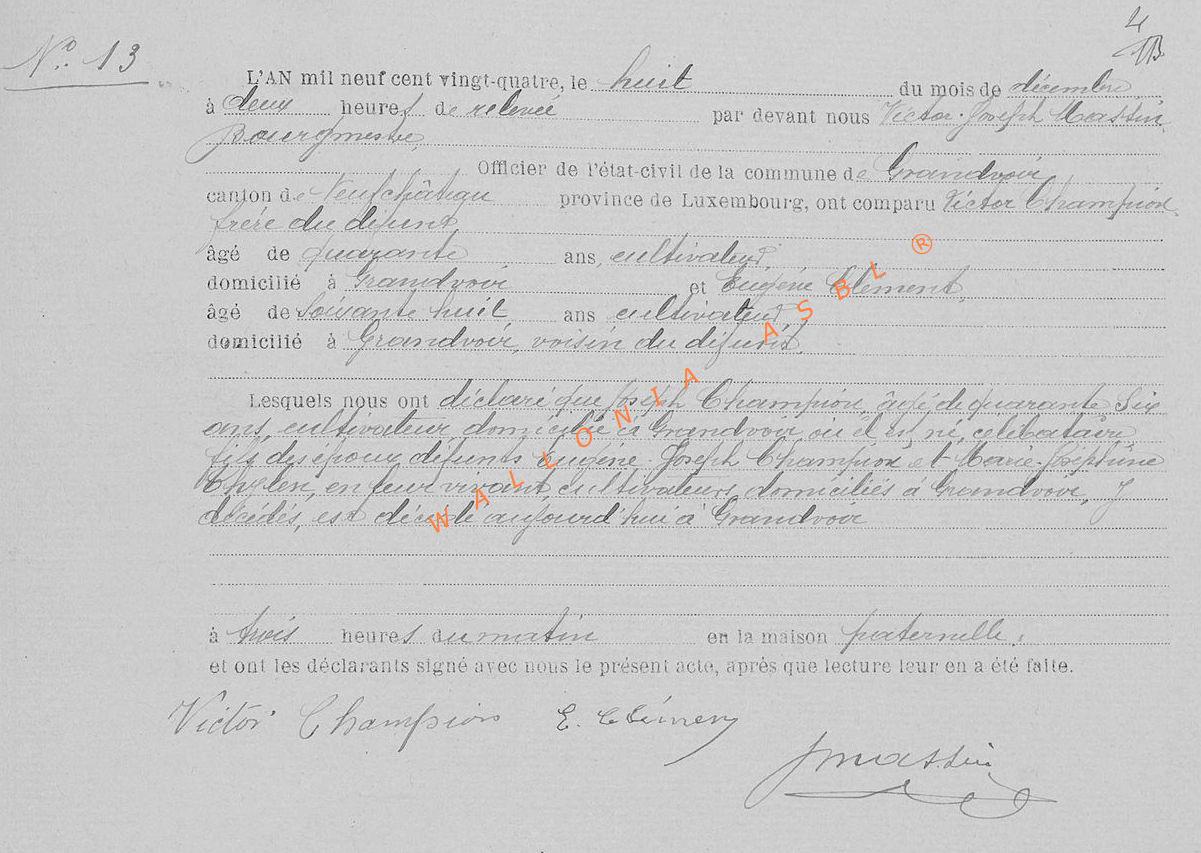 N° 13
L'AN mil neuf cent vingt-quatre, le huit du mois de décembre
à deux heures de relevée par devant nous Victor-Joseph Massin
Bourgmestre,
Officier de l'état-civil de la commune de Grandvoir
canton de Neufchâteau province de Luxembourg, ont comparu Victor Champion
frère du défunt
âgé de quarante ans, cultivateur
domicilié à Grandvoir et Eugène Clément,
âgé de soixante huit ans cultivateur
domicilié à Grandvoir, voisin du défunt.
Lesquels nous ont déclaré que Joseph Champion, âgé de quarante six
ans, cultivateur domicilié à Grandvoir où il est né, célibataire,
fils des époux défunts Eugène-Joseph Champion et Marie-Joséphine
en leur vivant, cultivateurs, domiciliés à Grandvoir, y
décédés, est décédé aujourd'hui à Grandvoir
à trois heures du matin en la maison paternelle.
et ont les déclarants signé avec nous le présent acte, après que lecture leur en a été faite.
Victor Champion E. Clément
Jmassin
WALLONIA ASBL ®